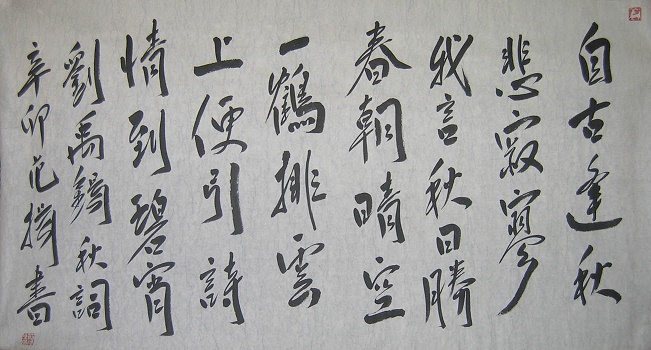 自古逢秋
悲寂寥
我言秋日勝
春朝晴空
一鶴排雲
上便引詩
情到碧宵
劉禹錫秋詞
辛卯范書